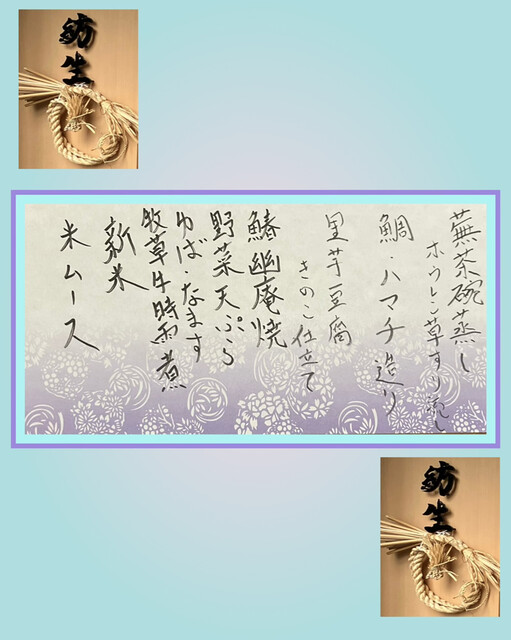 紡生
蕪茶碗蒸し
ホウレン草すり流し
鯛・ハマチ造り
里芋豆腐
きのこ仕立て
鰆幽庵焼
野菜天ぷら
ゆば・なます
牧草牛時雨煮
新米
米ムース
紡生